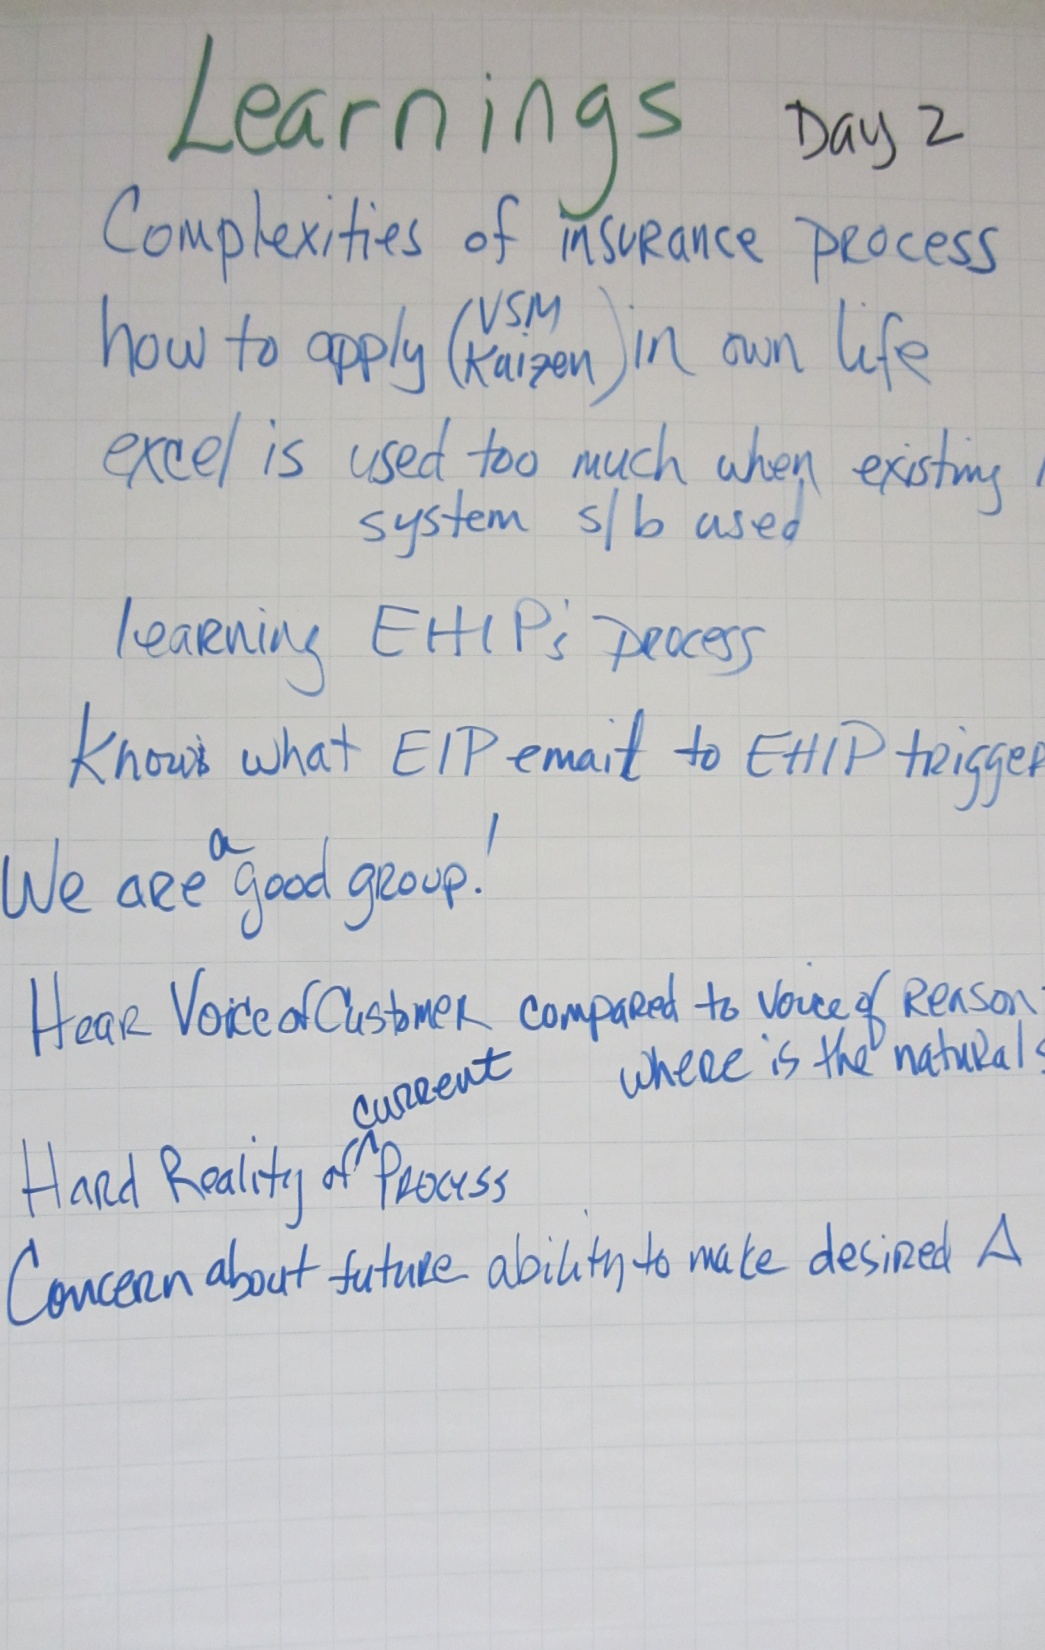 Learnings Day 2
Complexities of insurance process
how to apply (VSM Kaizen) in own life
excel is used too much when existing
system s/b used
learning EHIP's process
Knows what EIP email to EHIP trigger
We are a good group!
Hear Voice of Customer compared to Voice of Reason
where is the natural
Hard Reality of ^current Process
Concern about future ability to make desired Δ